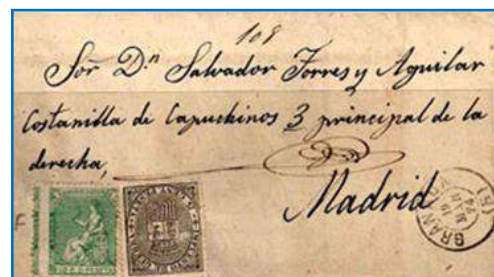 108
Sor Dn Salvador Torres y Aguilar
Costanilla de Capuchinos 3 principal de la
derecha,
Madrid
GRAN
19
MAR
74
(5)